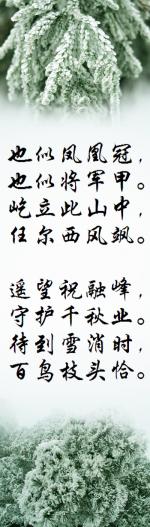 也似凤凰冠，
也似将军甲。
屹立此山中，
任尔西风飒。
遥望祝融峰，
守护千秋业。
待到雪消时，
百鸟枝头恰。